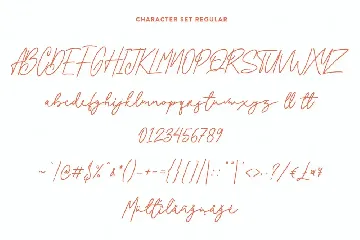 CHARACTER SET REGULAR
ABCDEFGHIJKLMNOPQRSTUVWXYZ
abcdefghijklmnopqrstuvwxyz ll tt
0123456789
~`!@#$%^&*()_-+={}[]|\:;"'<>,.?/€£¤¥
Multilingual